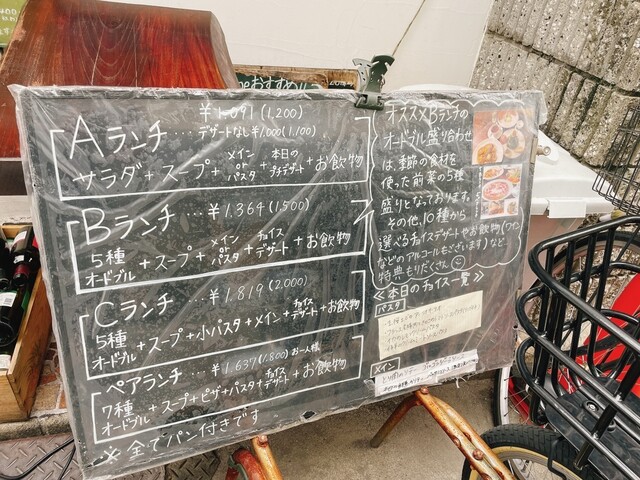 おすすめ!!
Aランチ ¥1,091(1,200)
… デザートなし¥1,000(1,100)
サラダ+スープ+メインorパスタ+本日のプチデザート+お飲物
Bランチ … ¥1,364(1,500)
5種オードブル+スープ+メインorパスタ+チョイスデザート+お飲物
Cランチ … ¥1,819(2,000)
5種オードブル+スープ+小パスタ+メイン+チョイスデザート+お飲物
ペアランチ … ¥1,637(1,800)お一人様
7種オードブル+スープ+ピザ+パスタ+チョイスデザート+お飲物
※全てパン付きです
オススメBランチの
オードブル盛り合わせ
は、季節の食材を
使った前菜の5種
盛りとなっております。
その他、10種から
選べるチョイスデザートやお飲物(ワイン
などのアルコールもございます)など、
特典もりだくさん
≪本日のチョイス一覧≫
パスタ
メイン